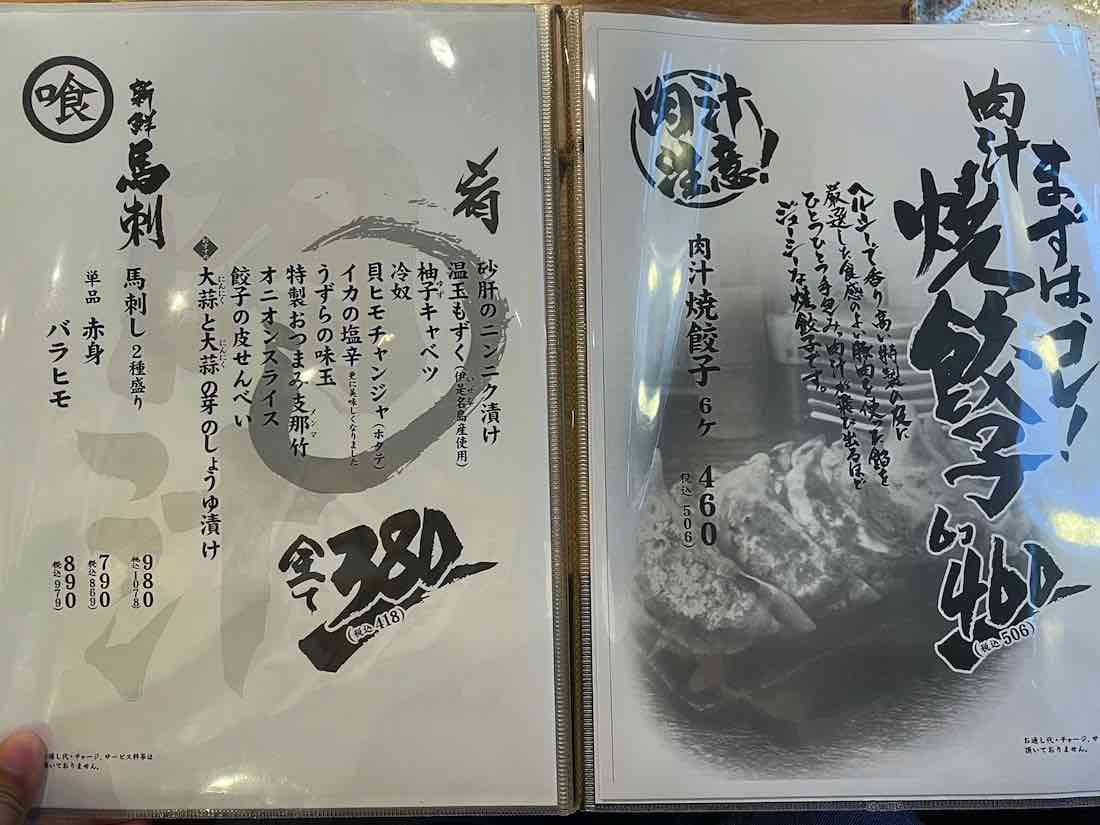 まずは、コレ!
肉汁
焼餃子
6コ
460
(税込506)
ヘルシーで香り高い特製の皮に
厳選した食感のよい豚肉を使った餡を
ひとつひとつ手包み。肉汁が飛び出るほど
ジューシーな焼餃子です。
肉汁
注意!
肉汁焼餃子 6ヶ 460
(税込506)
お通し代・チャージ、サ
頂いておりません。
肴
砂肝のニンニク漬け
温玉もずく(伊是名島産使用)
いぜな
柚子キャベツ
ゆず
冷奴
貝ヒモチャンジャ(ホタテ)
イカの塩辛 更に美味しくなりました
うずらの味玉
特製おつまみ支那竹
メンマ
オニオンスライス
餃子の皮せんべい
大蒜と大蒜の芽のしょうゆ漬け
にんにく にんにく
全て380
(税込418)
喰
新鮮
馬刺
馬刺し2種盛り 980
(税込1078)
単品 赤身 790
(税込869)
バラヒモ 890
(税込979)
お通し代・チャージ、サービス料等は
頂いておりません。